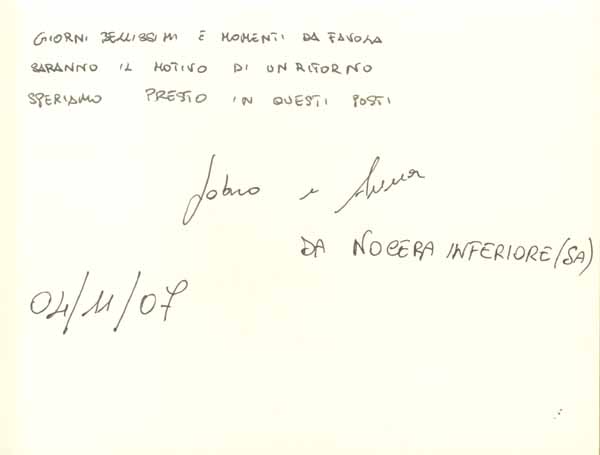 GIORNI BELLISSIMI E MOMENTI DA FAVOLA
SARANNO IL MOTIVO DI UN RITORNO
SPERIAMO PRESTO IN QUESTI POSTI
e
DA NOCERA INFERIORE (SA)
04/11/07